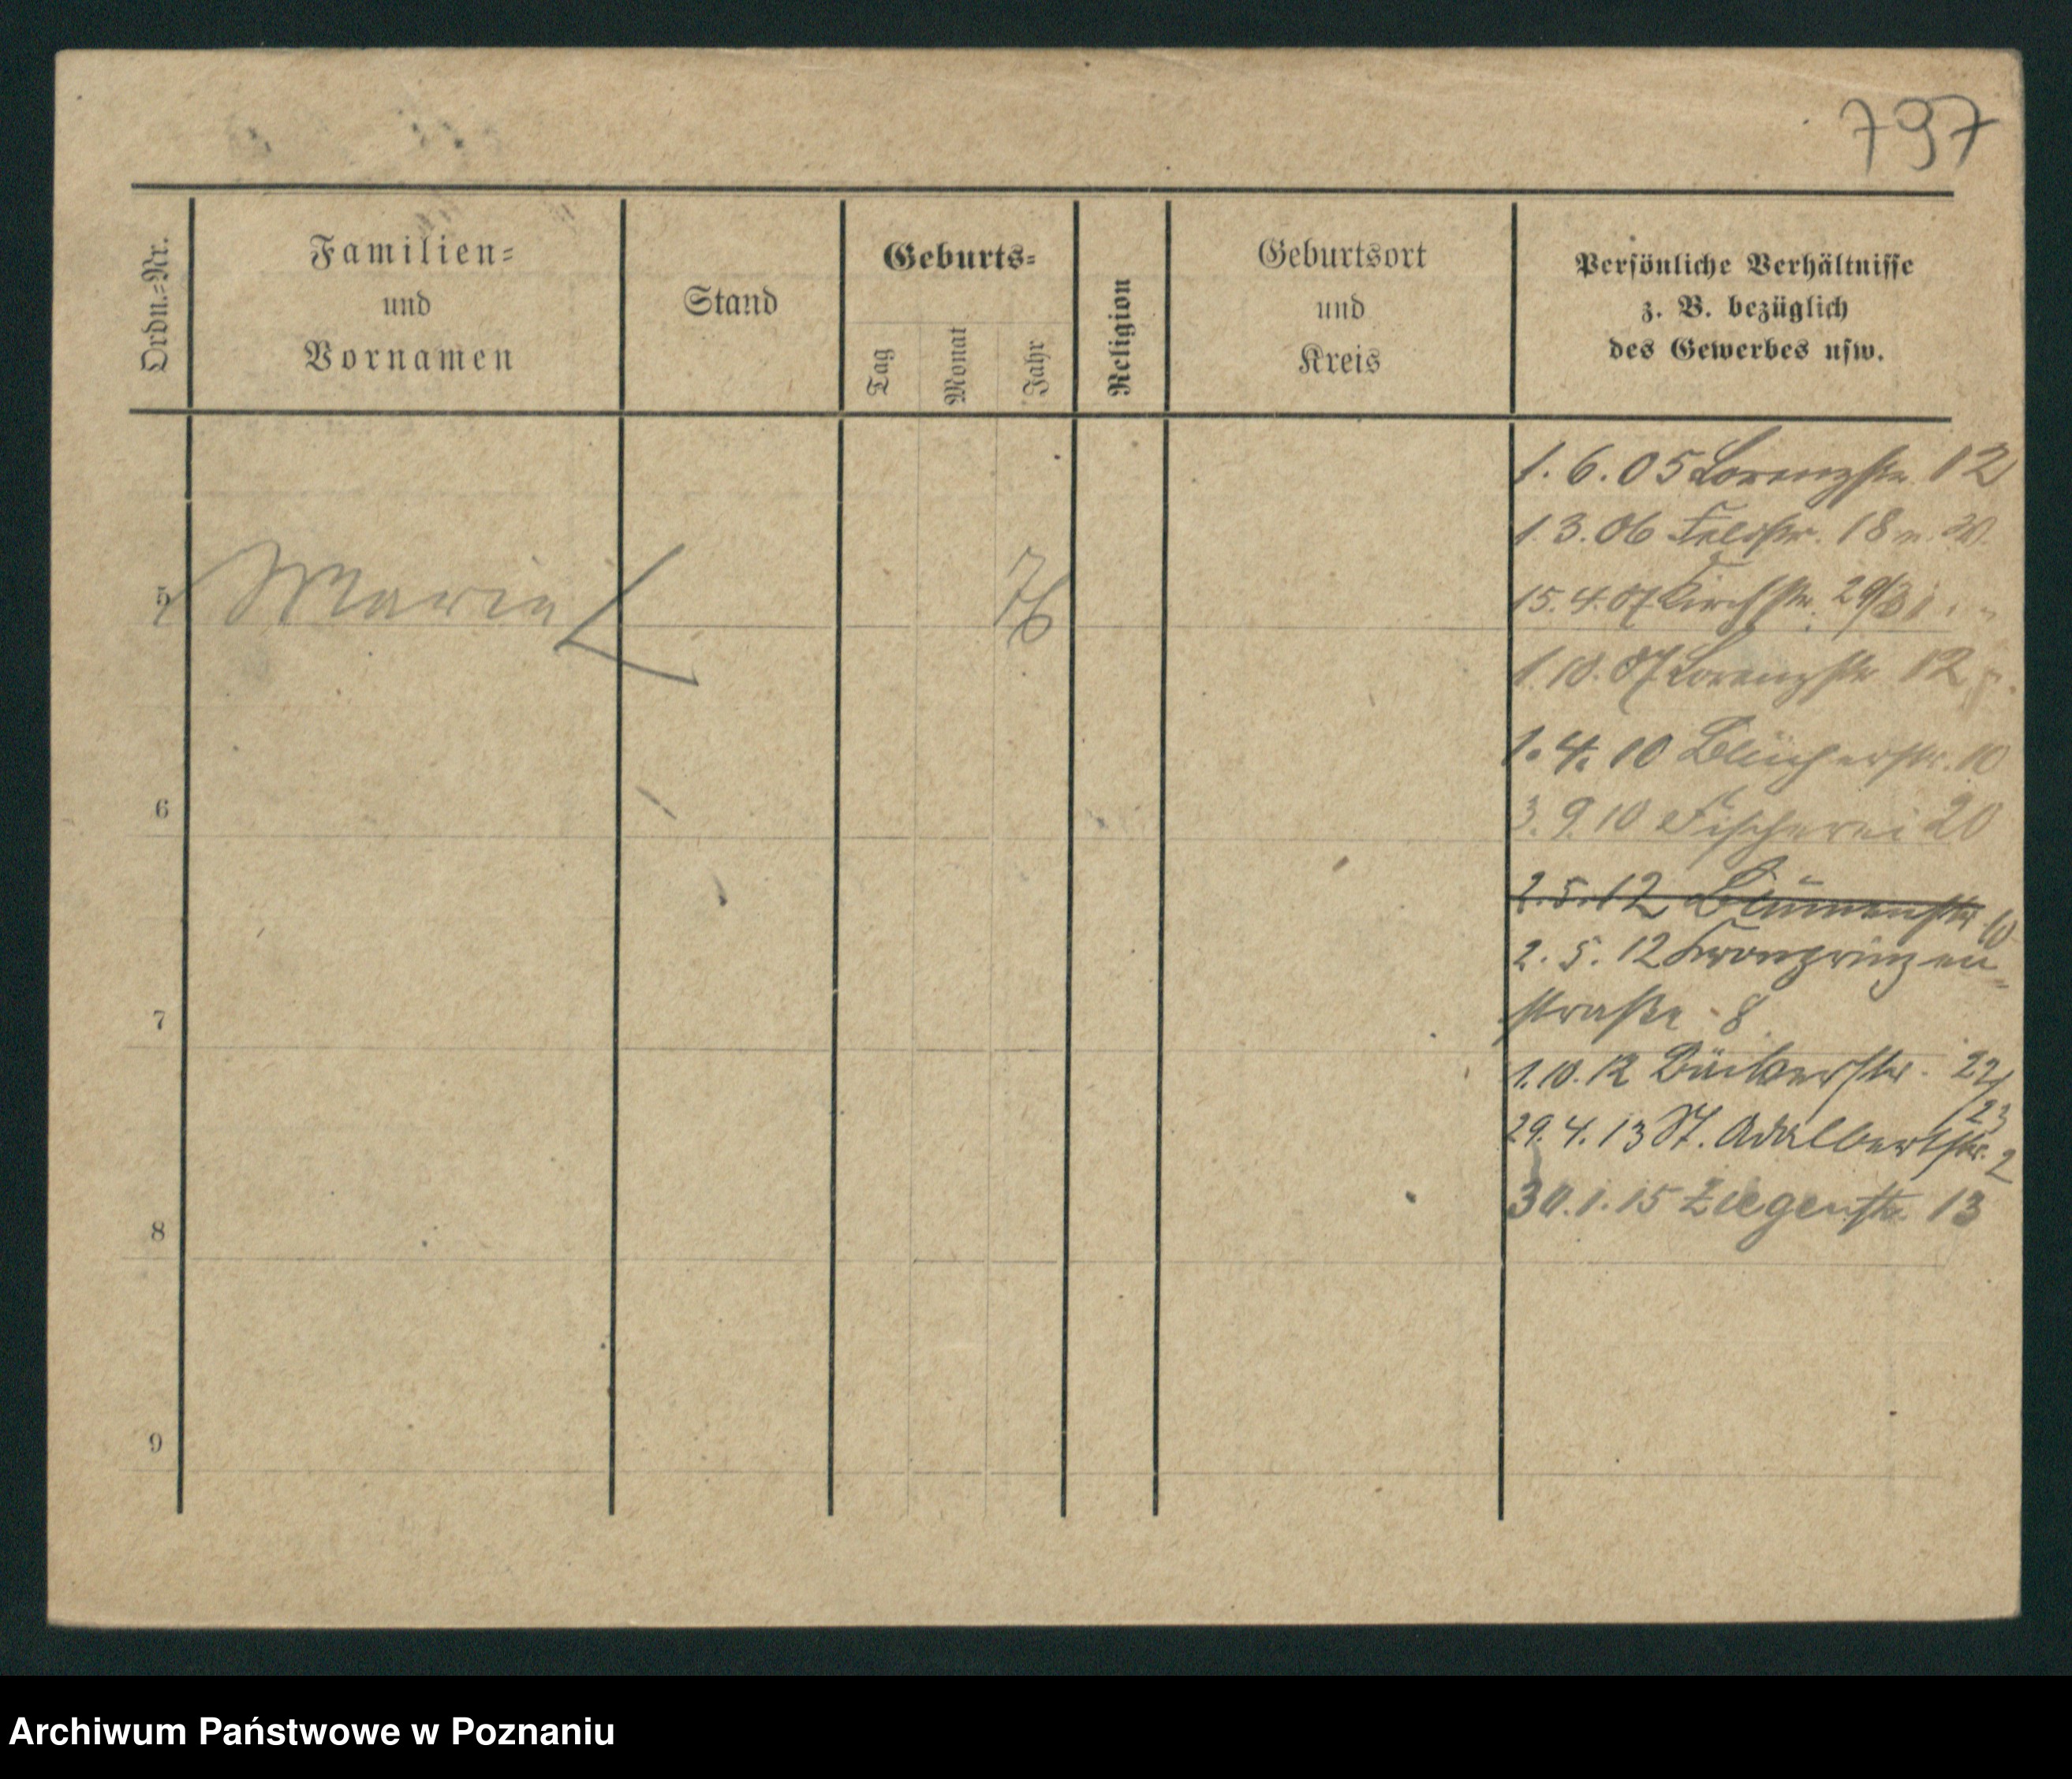 797
Ordn.=Nr.
Familien=
und
Vornamen
Stand
Geburts=
Tag
Monat
Jahr
Religion
Geburtsort
und
Kreis
Persönliche Verhältnisse
z. B. bezüglich
des Gewerbes usw.
1. 6. 05 Lorenzstr. 12
1 3. 06 Feldstr. 18
5 Marie 76
15. 4. 07 Kirchstr. 29/31
1. 10. 07 Lorenzstr. 12
1. 4. 10 Blücherstr. 10
6
3. 9. 10 Fischerei 20
2. 5. 12 Blumenstr. 10
2. 5. 12 Kronprinzen=
straße 8
7
1. 10. 12 Bäckerstr. 22/
23
29. 4. 13 St. Adalbertstr. 2
30. 1. 15 Ziegenstr. 13
8
9
Archiwum Państwowe w Poznaniu